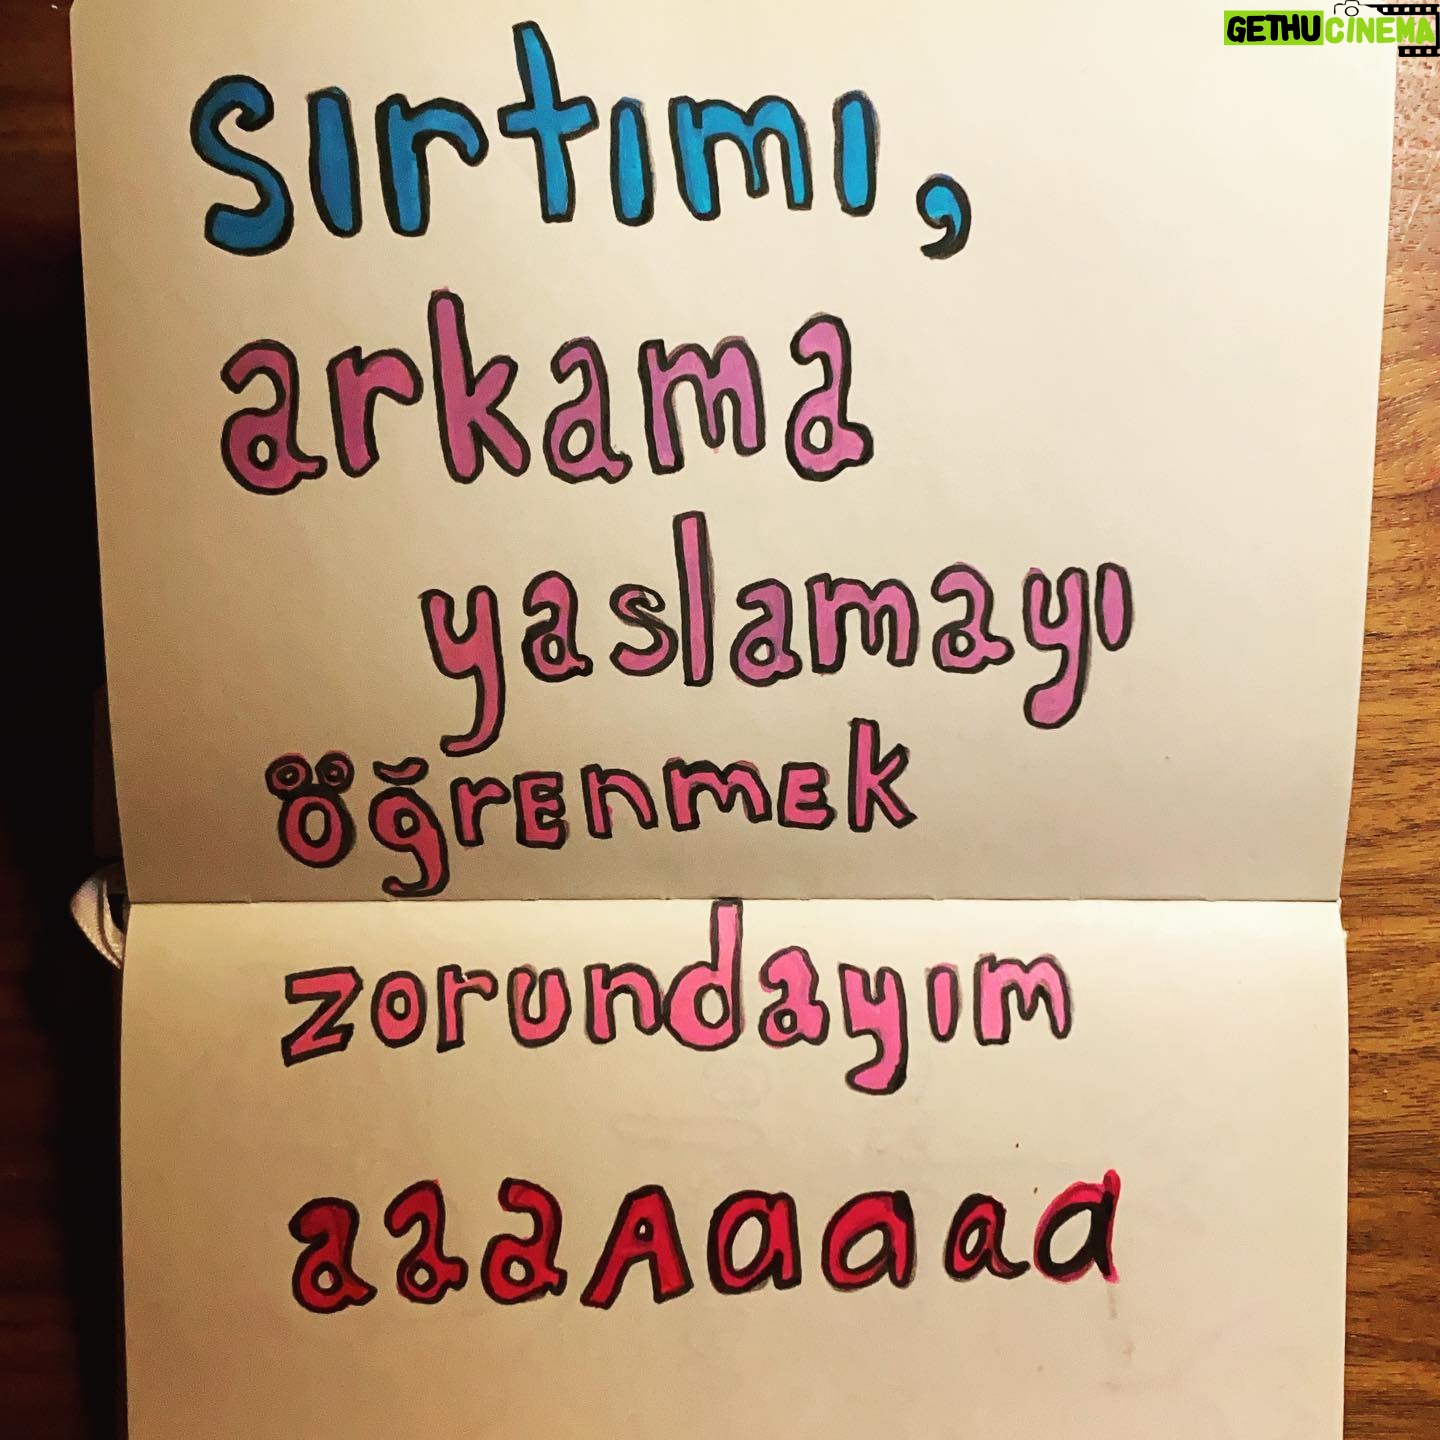 GETHUCINEMA
sırtımı,
arkama
yaslamayı
öğrEnmEk
zorundayım
aaaAaaaa